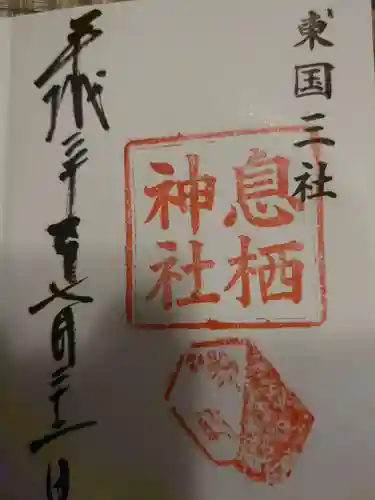 東国三社
息栖
神社
平成二十七年七月二十一日